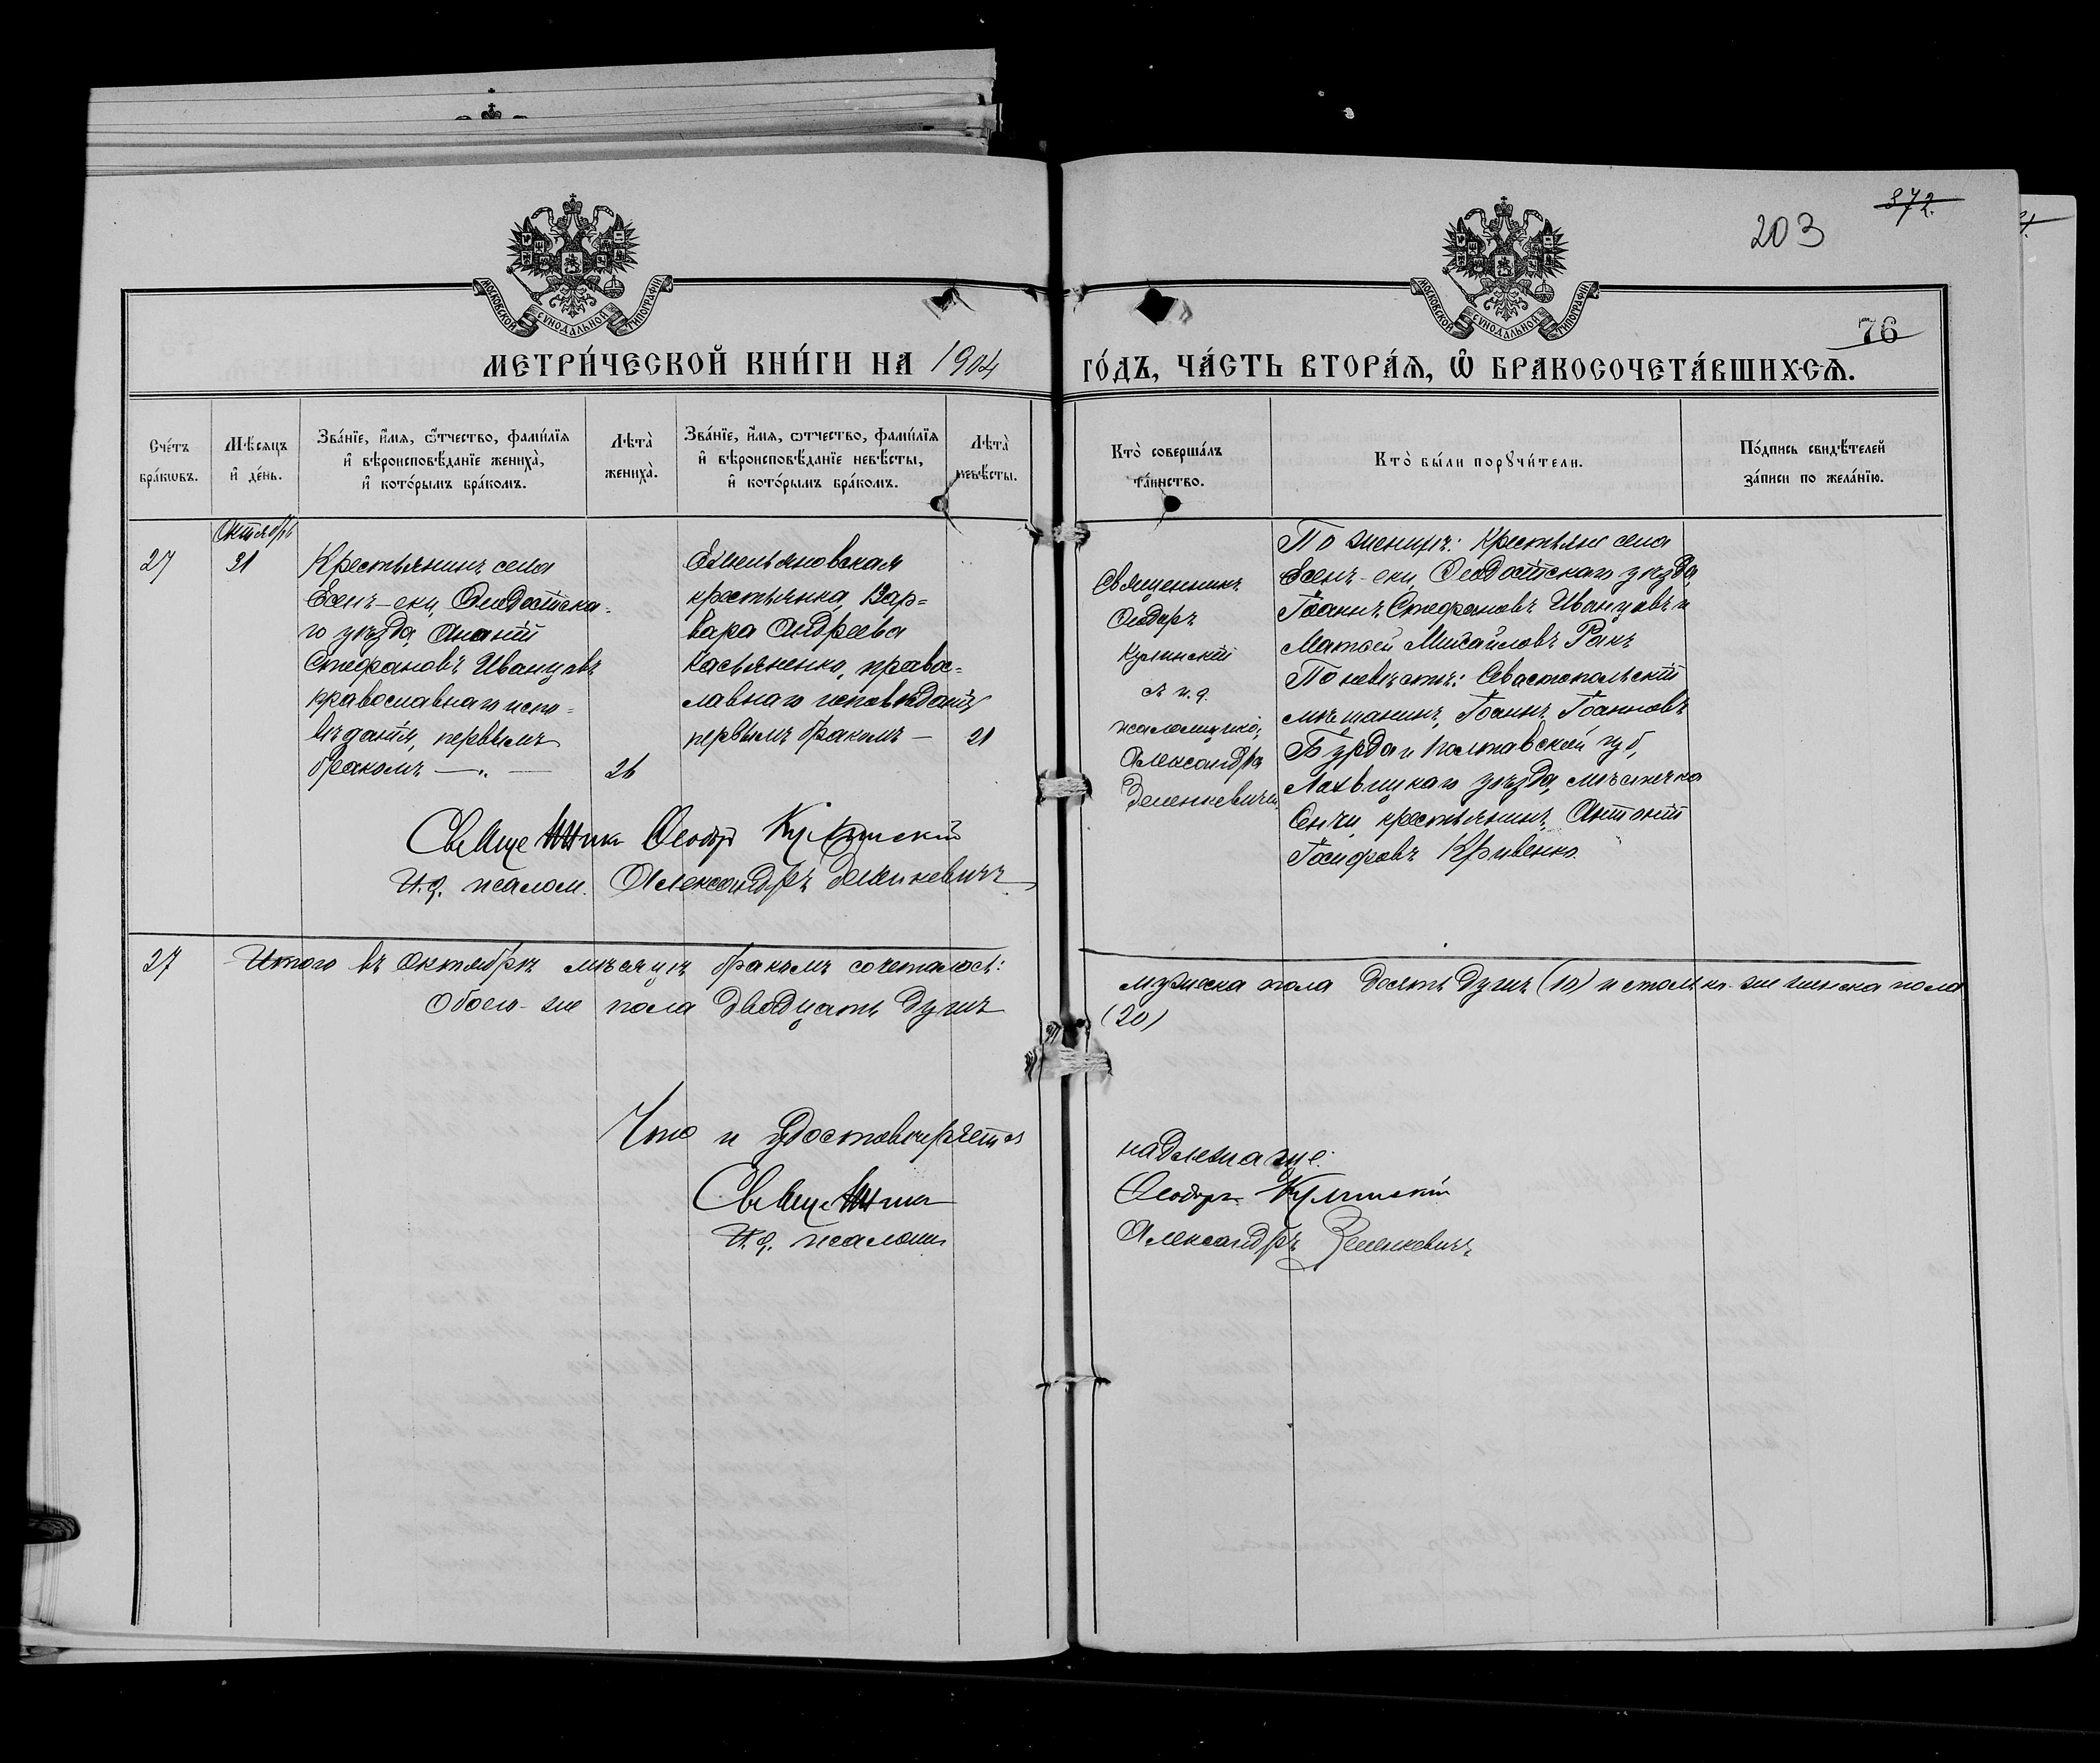 203
372.
76
МОСКОВСКОЙ СѴНОДАЛЬНОЙ ТИПОГРАФІИ
МОСКОВСКОЙ СѴНОДАЛЬНОЙ ТИПОГРАФІИ
МЕТРИ́ЧЕСКОЙ КНИ́ГИ НА 1904
ГО́ДЪ, ЧА́СТЬ ВТОРА́Ѧ, Ѡ҆ БРАКОСОЧЕТА́ВШИХСѦ.
Сче́тъ
бра́кѡвъ.
Мѣ́сяцъ
и҆ де́нь.
Зва́нїе, и҆́мѧ, ѻ҆́тчество, фамилїѧ
и҆ вѣроисповѣ́данїе жениха̀,
и҆ кото́рымъ бра́комъ.
Лѣта̀
жениха̀.
Зва́нїе, и҆́мѧ, ѻ҆́тчество, фамилїѧ
и҆ вѣроисповѣ́данїе невѣ́сты,
и҆ кото́рымъ бра́комъ.
Лѣта̀
невѣ́сты.
Кто̀ соверша́лъ
та́инство.
Кто̀ бы́ли порꙋчи́тели.
По́дпись свидѣ́телей
за́писи по жела́нїю.
27
Октябрь
31
Крестьянинъ села
Ѳеодосійска-
го уѣзда, Ананій
Стефановъ Иванцовъ
православнаго испо=
вѣданія, первымъ
бракомъ — „ —
26
Емельяновская
крестьянка, Вар=
вара Андреева
Касьяненко, правос=
лавнаго исповѣданія
первымъ бракомъ —
21
Священникъ
Ѳеодоръ
Кулинскій
съ и.д.
псаломщика,
Александръ
Зеленкевичъ
По женихѣ: Крестьяне села
Ѳеодосійскаго уѣзда,
Іоаннъ Стефановъ Иванцовъ и
Матѳей Михайловъ Ракъ
По невѣстѣ: Севастопольскій
мѣщанинъ, Іоаннъ Іоанновъ
Бурда и Полтавской губ,
Лохвицкаго уѣзда, мѣстечка
Сенчи крестьянинъ Антоній
Іосифовъ Кривенко.
Священникъ Ѳеодоръ Кулинскій
И.д. псалом. Александръ Зеленкевичъ
27
Итого въ Октябрѣ мѣсяцѣ бракомъ сочеталось:
мужеска пола десять душъ (10) и столько-же женска пола
Обоего-же пола двадцать душъ
(20)
Что и удостовѣряется
надлежаще:
Священникъ
Ѳеодоръ Кулинскій
И.д. псаломщ
Александръ Зеленкевичъ